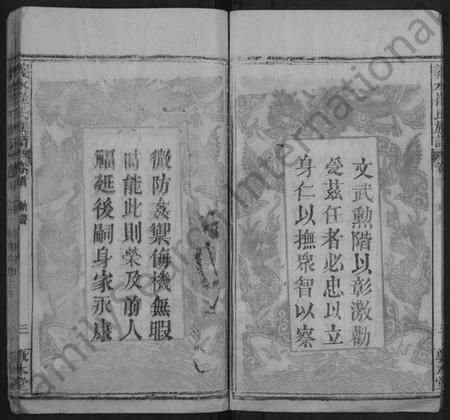 文武勲階以彰激勸
受茲任者必忠以立
身仁以撫衆智以察
微防姦禦侮機無暇
時能此則榮及前人
福延後嗣身家永康
敦本堂
三
敦本堂
FamilySearch International